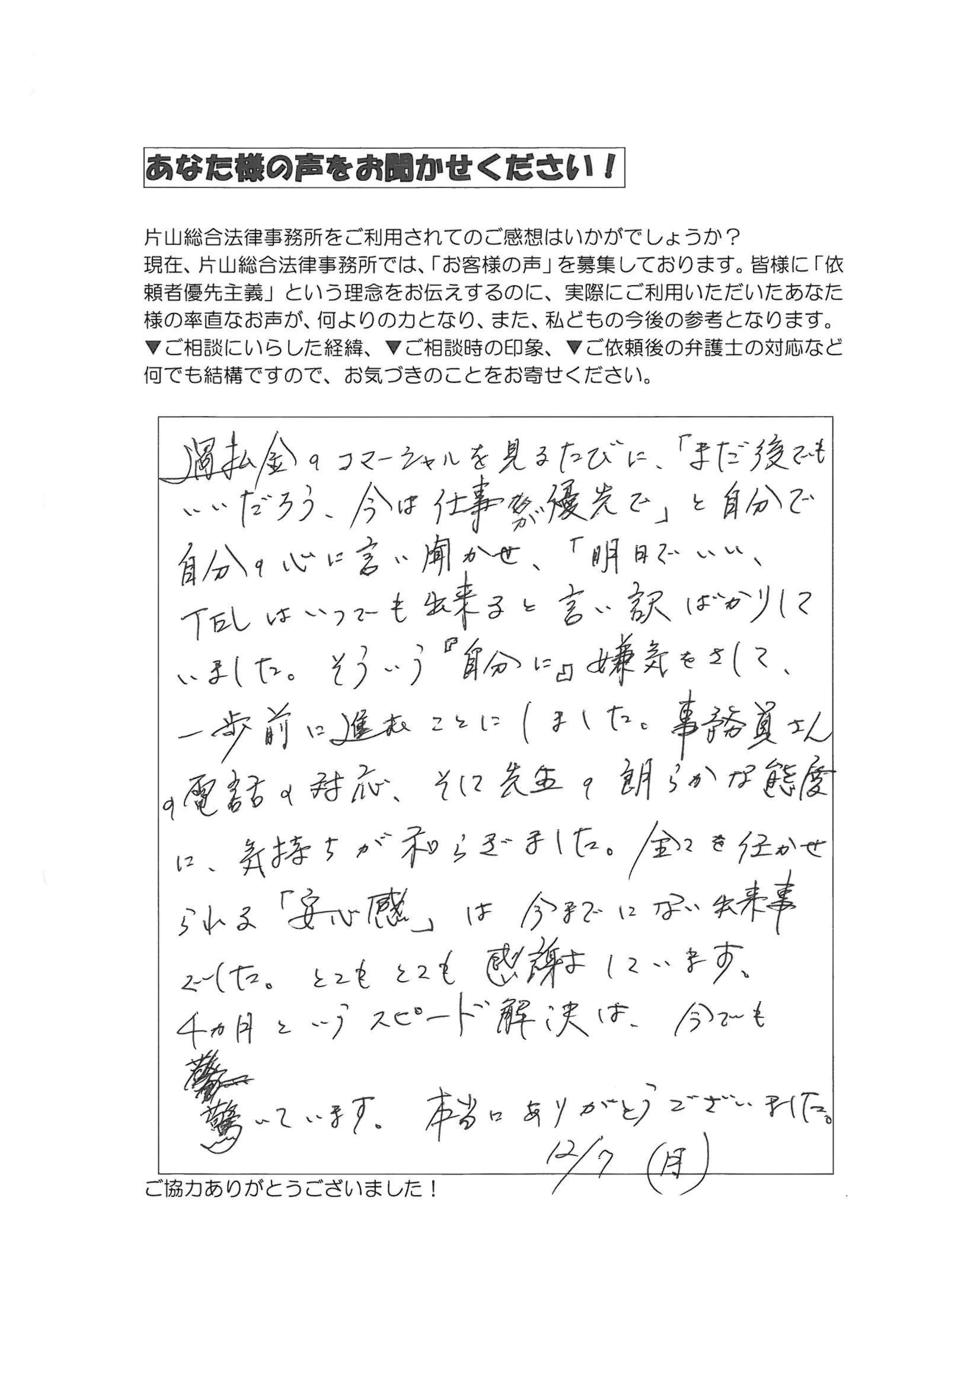 あなた様の声をお聞かせください！
片山総合法律事務所をご利用されてのご感想はいかがでしょうか？
現在、片山総合法律事務所では、「お客様の声」を募集しております。皆様に「依
頼者優先主義」という理念をお伝えするのに、実際にご利用いただいたあなた
様の率直なお声が、何よりの力となり、また、私どもの今後の参考となります。
▼ご相談にいらした経緯、▼ご相談時の印象、▼ご依頼後の弁護士の対応など
何でも結構ですので、お気づきのことをお寄せください。
過払金のコマーシャルを見るたびに、「まだ後でも
いいだろう、今は仕事が優先で」と自分で
自分の心に言い聞かせ、「明日でいい、
TELはいつでも出来ると言い訳ばかりして
いました。そういう『自分に』嫌気をさして、
一歩前に進むことにしました。事務員さん
の電話の対応、そして先生の朗らかな態度
に、気持ちが和らぎました。全てを任かせ
られる「安心感」は今までにない出来事
でした。とてもとても感謝しています。
4カ月というスピード解決は、今でも
驚いています。本当にありがとうございました。
12/7（月）
ご協力ありがとうございました！